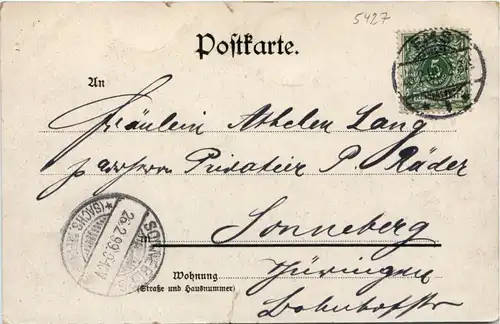 5427
Postkarte.
EMS
5
An
Fräulein Athelen Lang
Privatier P. Räder
Sonneberg
SONNEBERG
26.2.99.
*(SACHS.
in
Wohnung
(Straße und Hausnummer)
Thüringen
Bahnhofstr